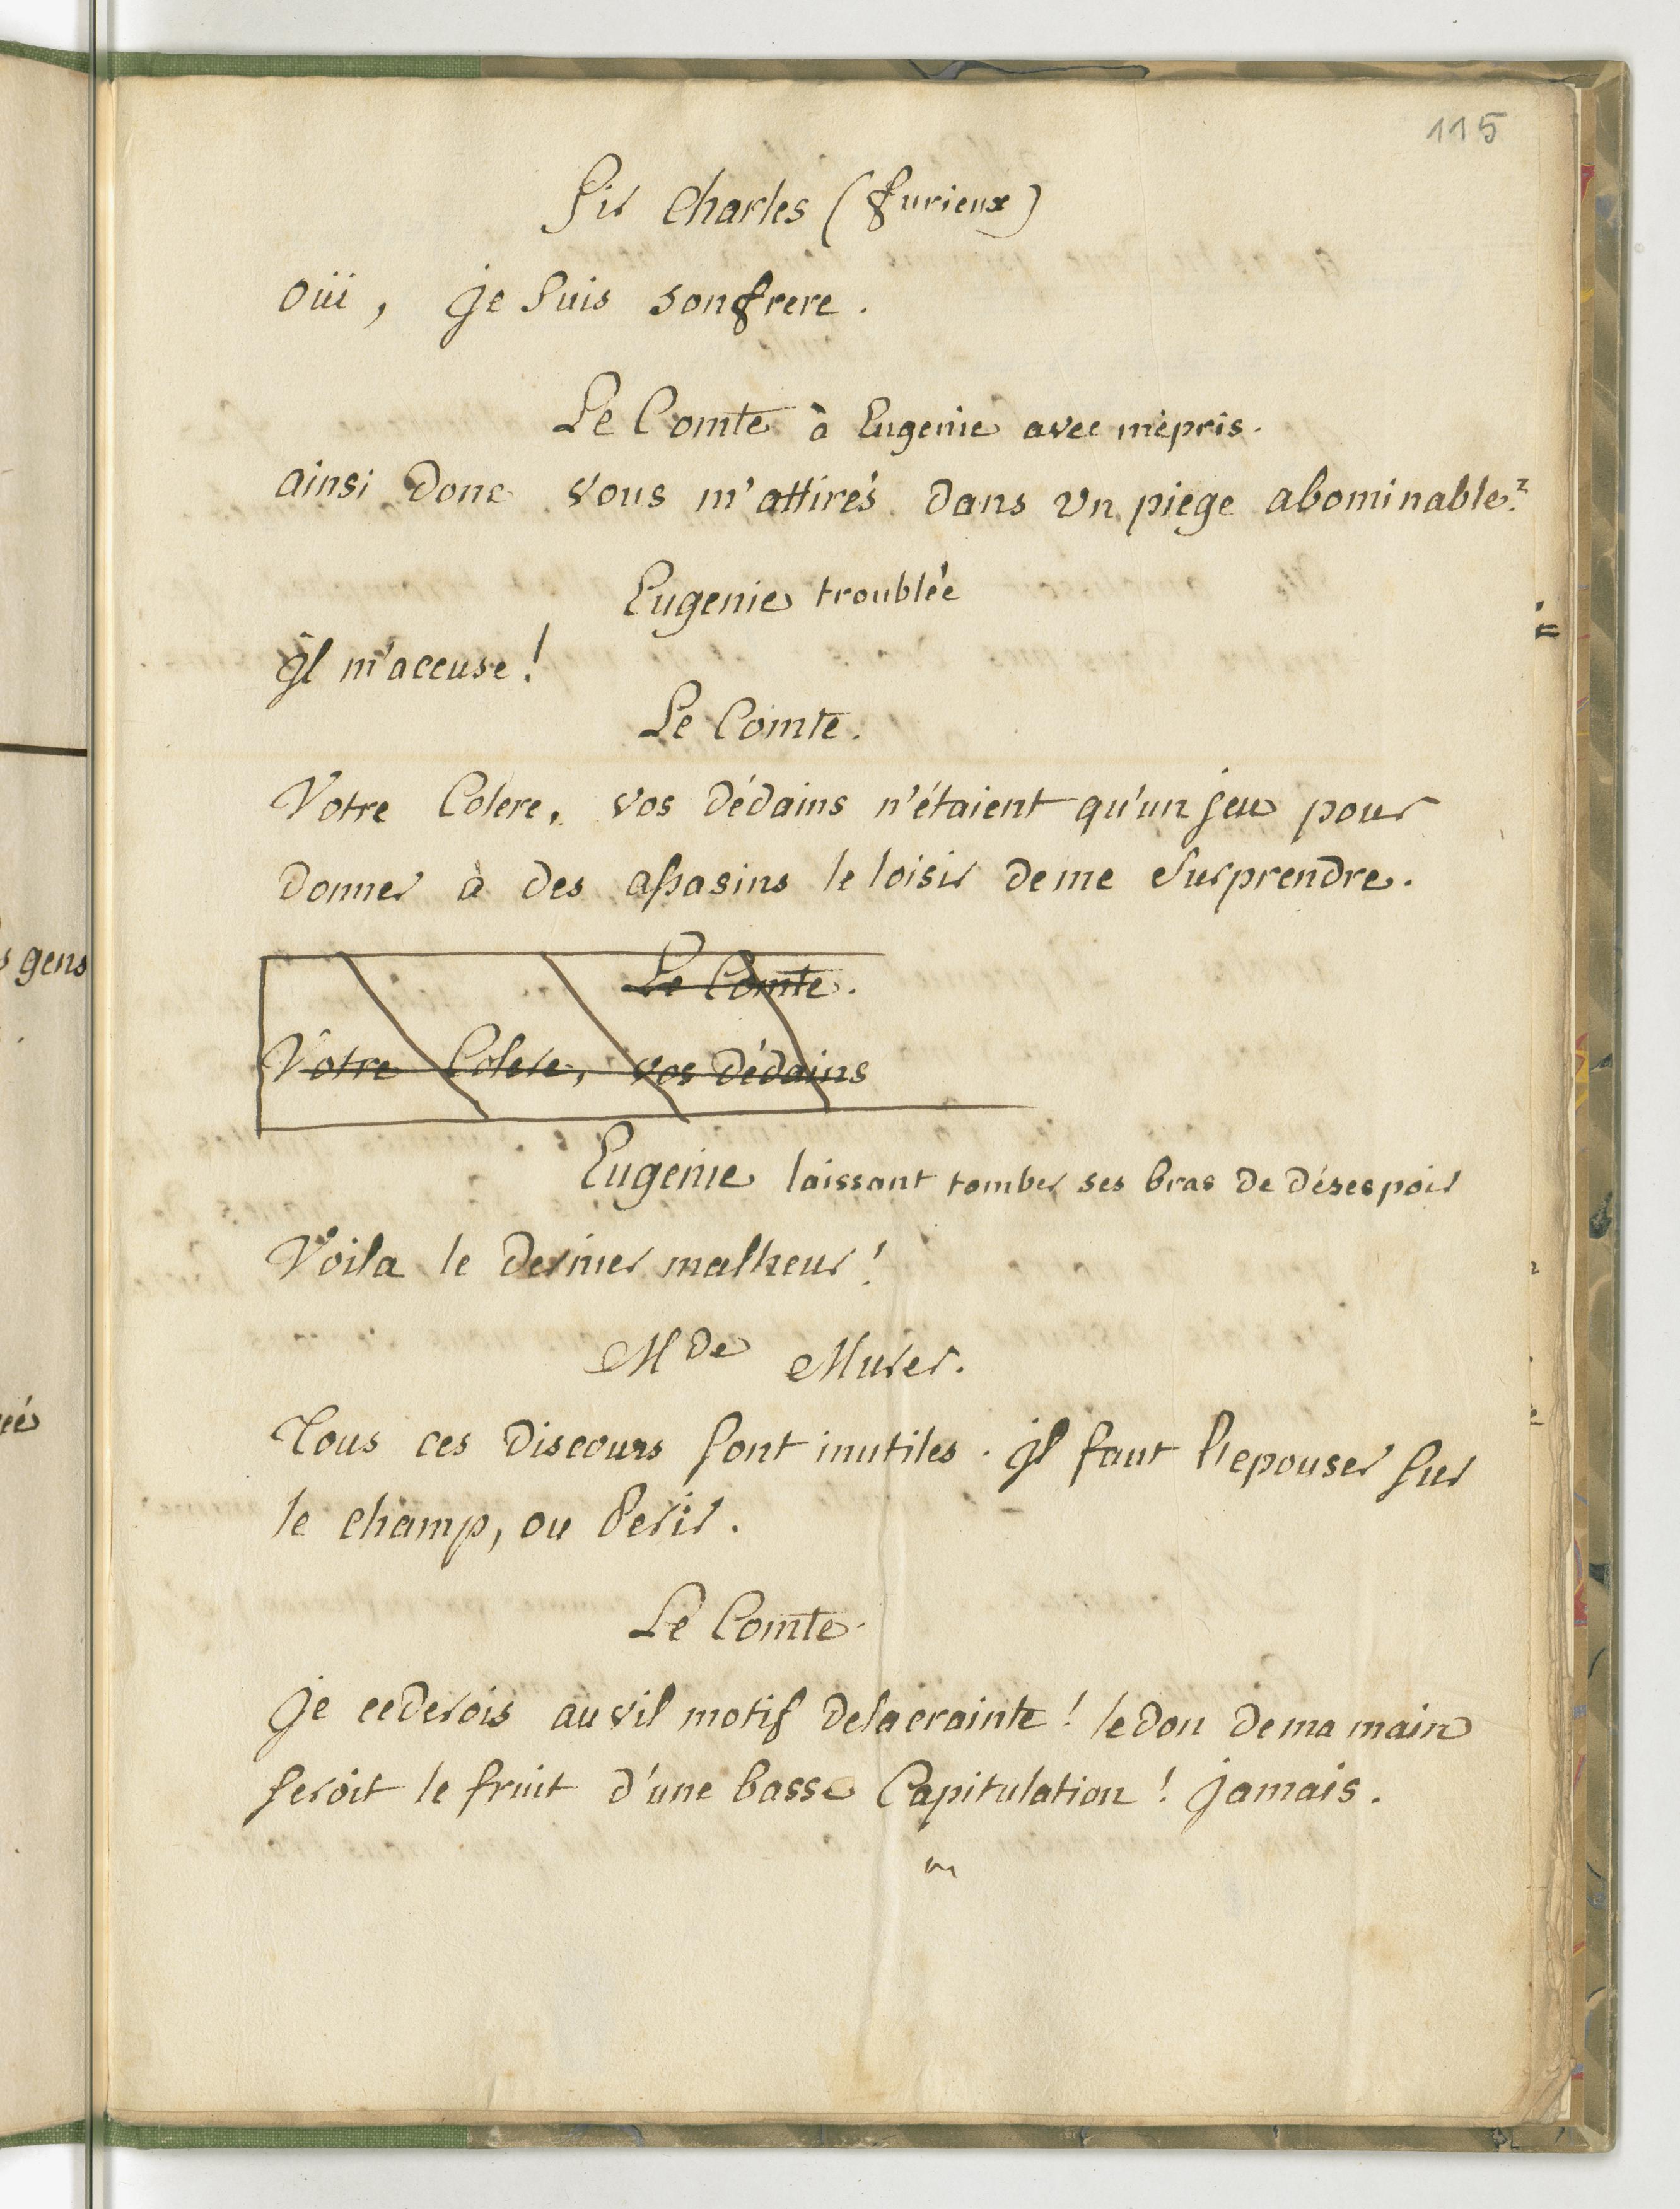 115
Sir Charles (furieux)
oüi, je suis son frere.
Le Comte à Eugenie avec mépris.
ainsi donc vous m'attirés dans un piege abominable?
Eugenie troublée
il m'accuse!
Le Comte.
Votre Colere, vos dédains n'étaient qu'un jeu pour
donner à des assasins le loisir de me surprendre.
Le Comte.
Votre Colere, vos dédains
Eugenie laissant tomber ses bras de désespoir
Voila le dernier malheur!
Mde Murer.
Tous ces discours sont inutiles. il faut l'epouser sur
le champ, ou Perir.
Le Comte.
je cederois au vil motif de la crainte! le don de ma main
seroit le fruit d'une basse Capitulation! jamais.
gens